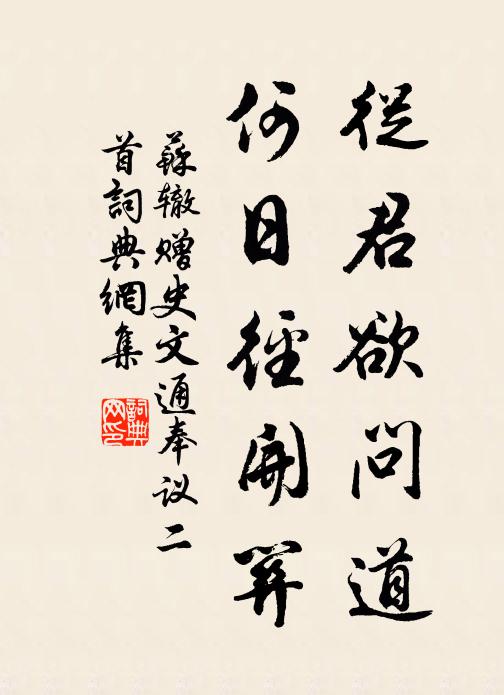 從君欲問道
何日徑開笄
蘇辙赠史文通奉议二
首詞典網集
詞典
网印